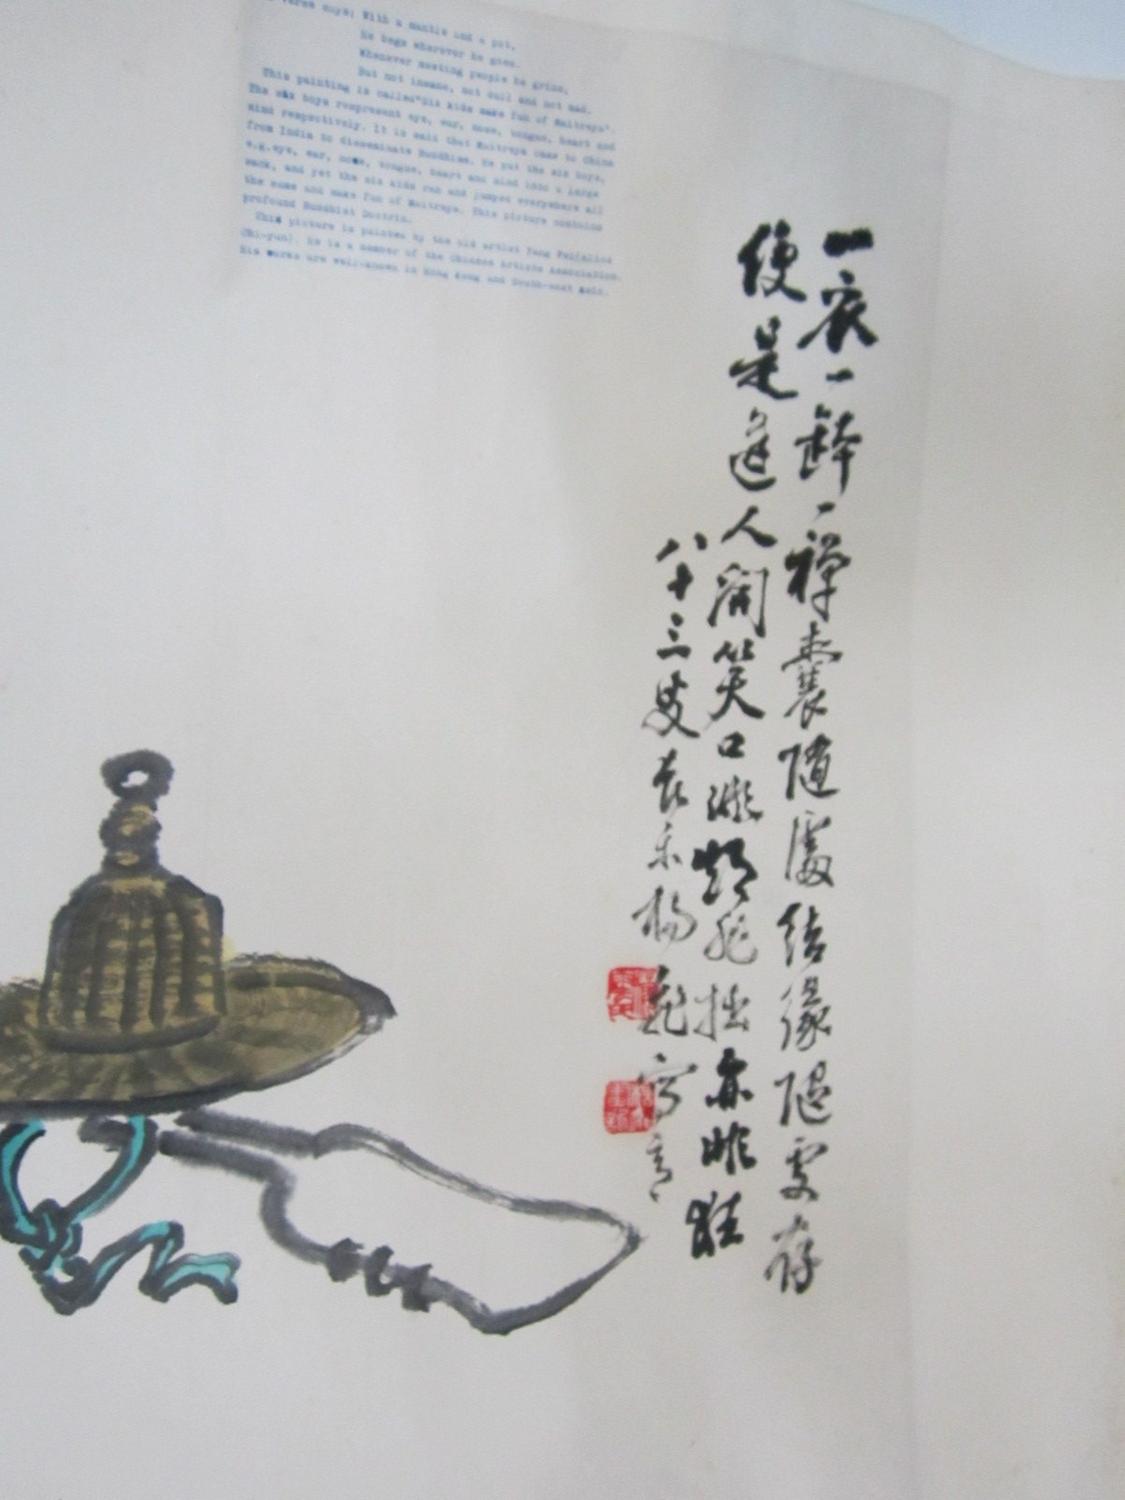 verse says: With a mantle and a pot,
He begs wherever he goes.
Whenever meeting people he grins,
But not insane, not dull and not mad.
This painting is called"Six kids make fun of Maitreya".
The six boys respresent eye, ear, nose, tongue, heart and
mind respectively. It is said that Maitreya came to China
from India to disseminate Buddhism. He put the six boys,
e.g.eye, ear, nose, tongue, heart and mind into a large
sack, and yet the six kids ran and jumped everywhere all
the same and make fun of Maitreya. This picture contains
profound Buddhist Doctrin.
This picture is painted by the old artist Yang
He is a member of the Chinese Artists Association.
His works are well-known in Hong Kong and South-east Asia.
一衣一鉢一禪囊隨處結緣隨處存
便是逢人開笑口非拙亦非狂
八十三叟楊寫